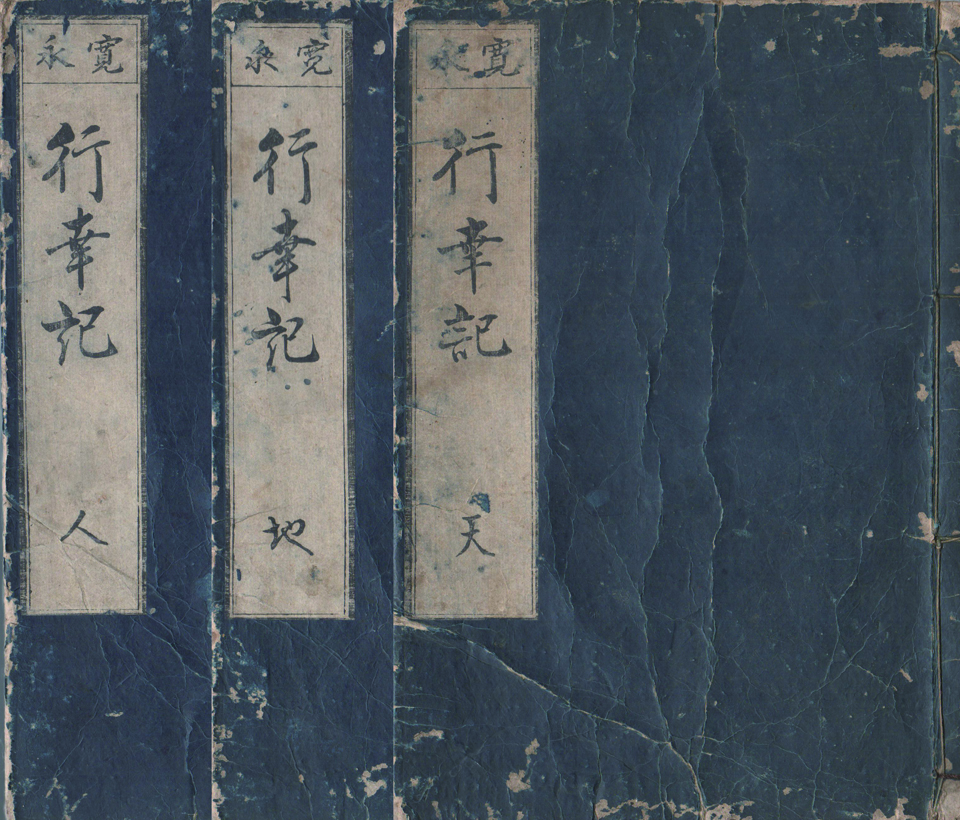 寛永
行幸記
天
寛永
行幸記
地
寛永
行幸記
人